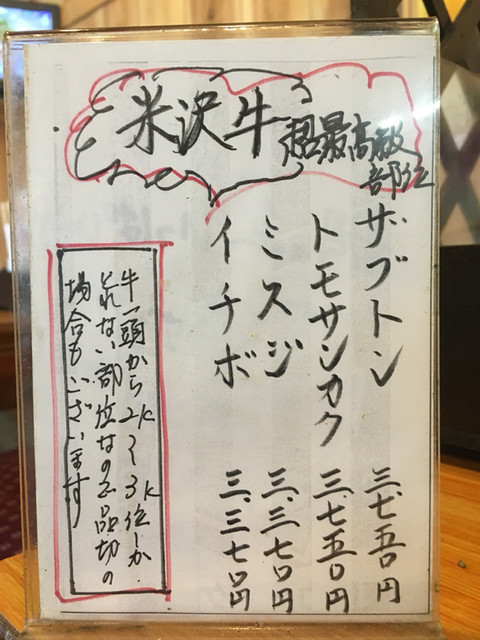 米沢牛 超最高級
部位
ザブトン 三、七五〇円
トモサンカク 三、七五〇円
ミスジ 三、三七〇円
イチボ 三、三七〇円
牛一頭から2K〜3K位しか
とれない部位なので品切の
場合もございます